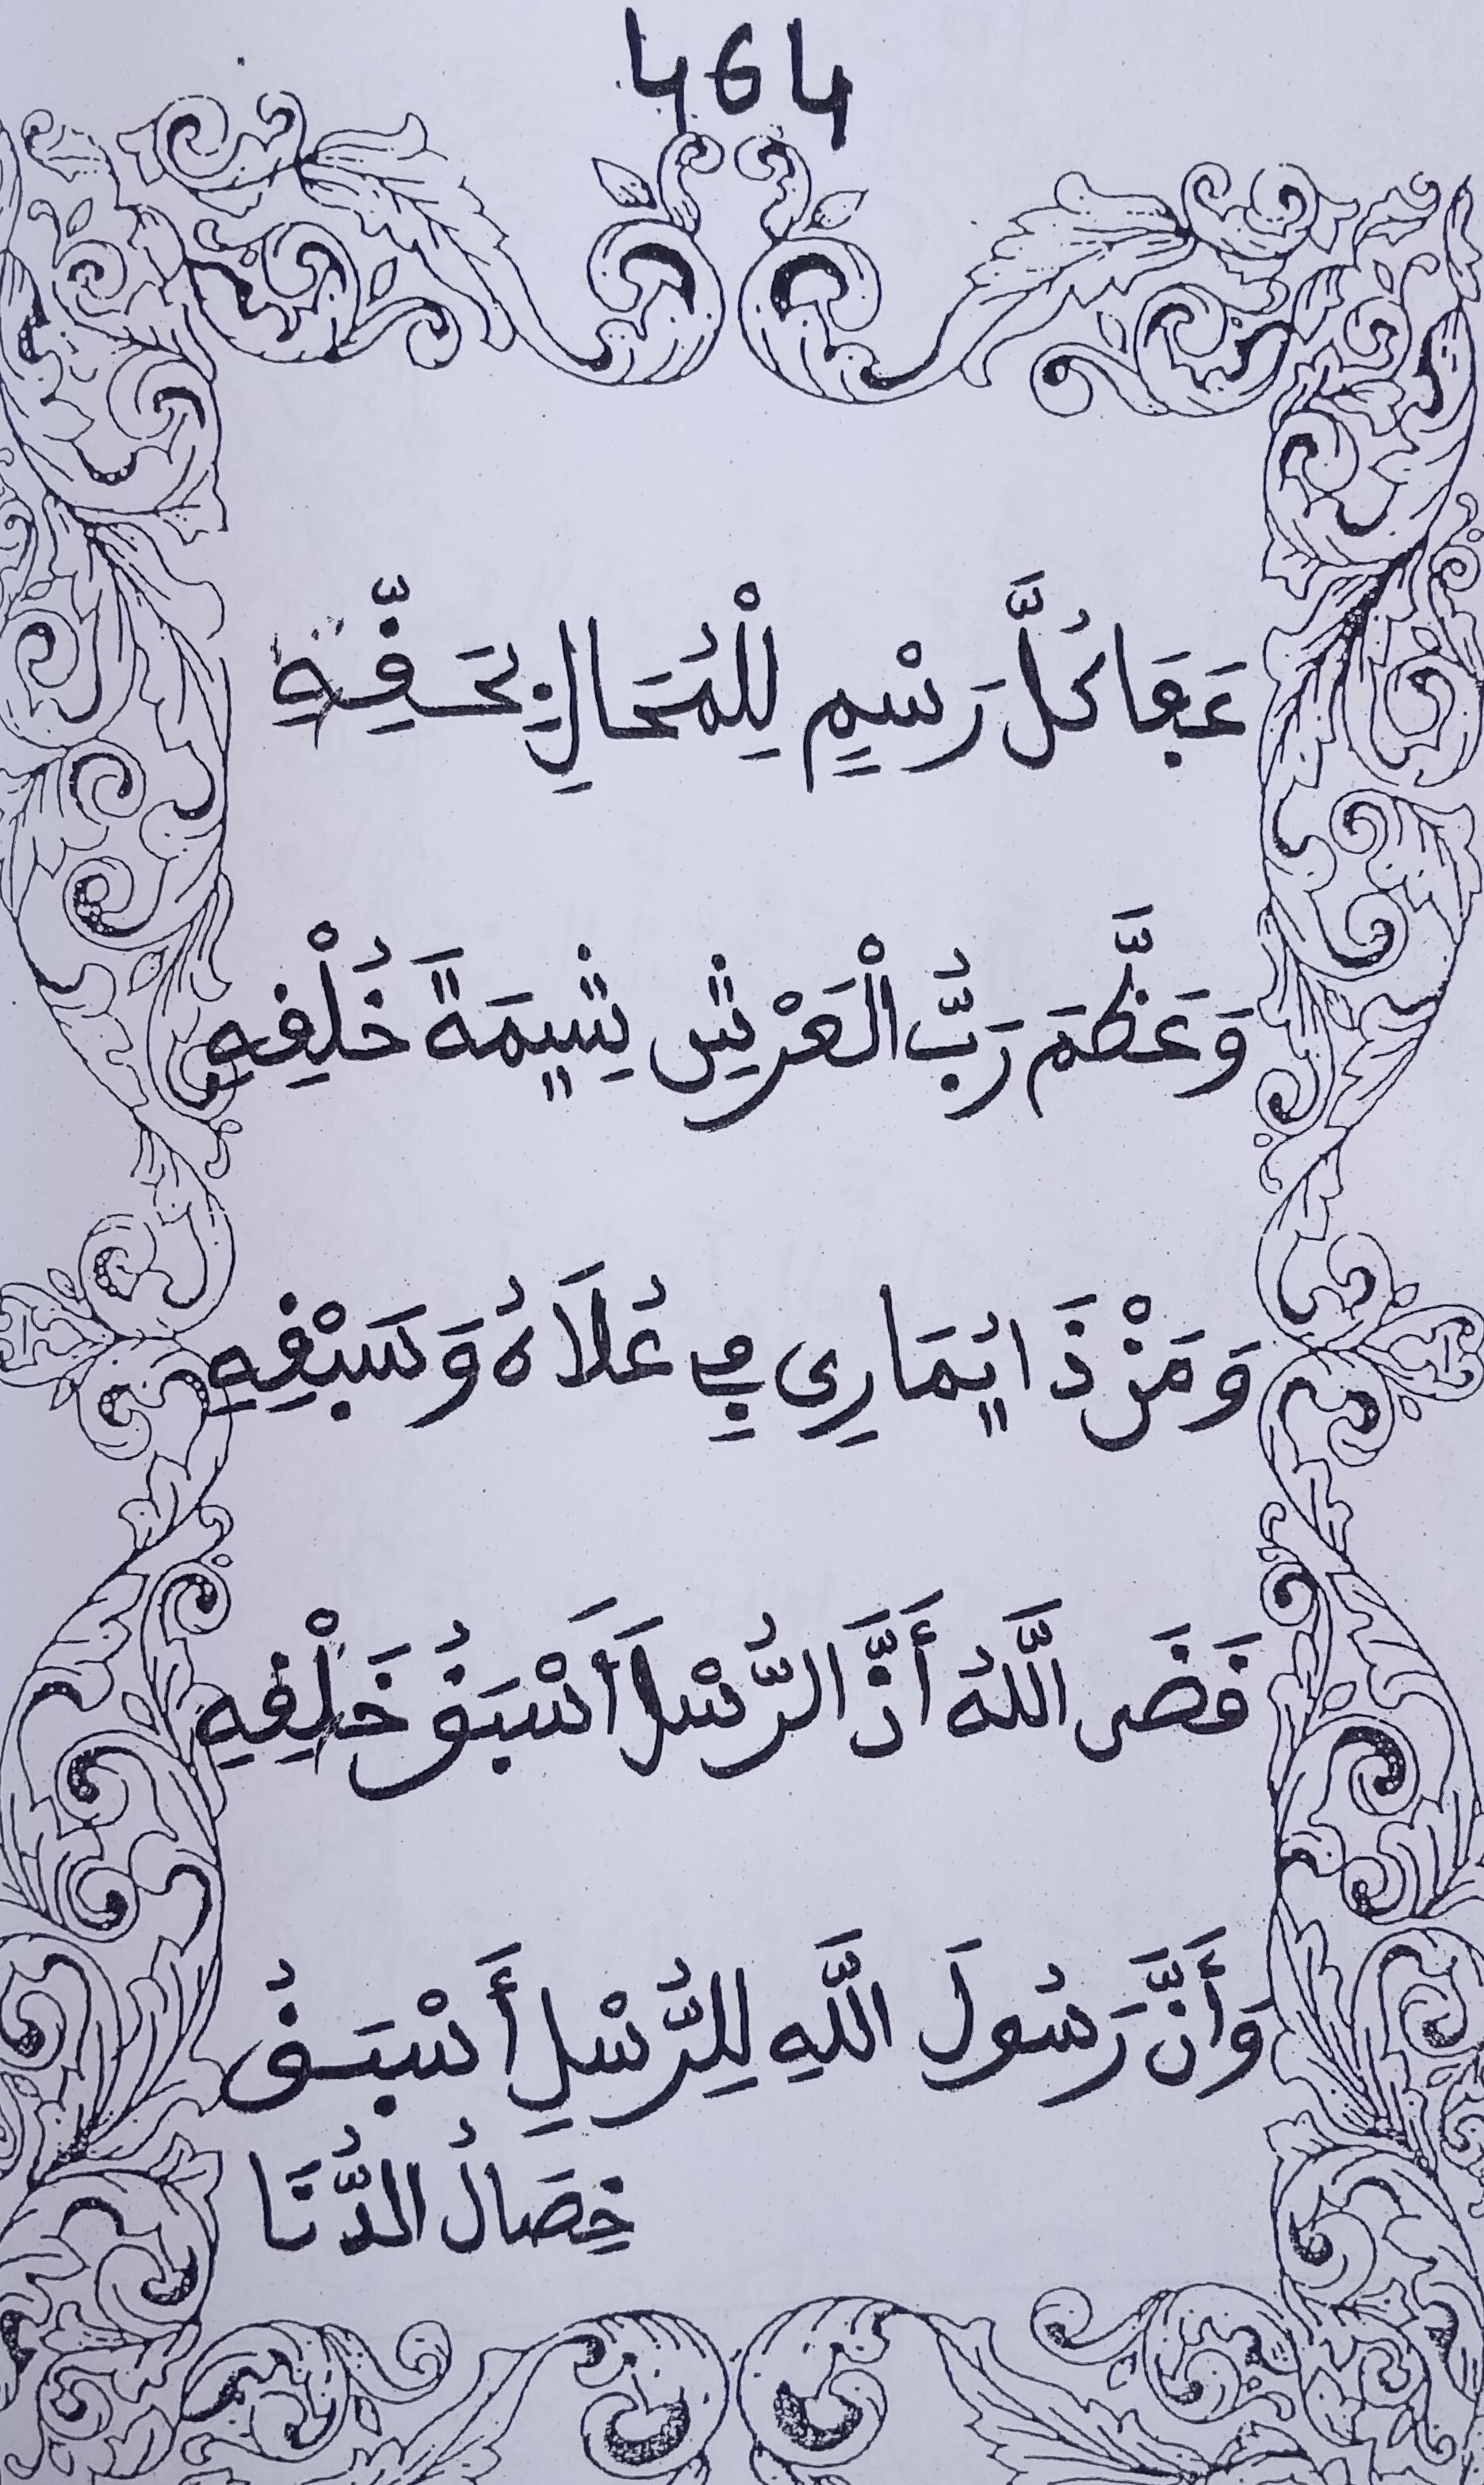 464
عَفَا كُلَّ رَسْمٍ لِلْمُحَالِ بِحَقِّهِ
وَعَظَّمَ رَبُّ الْعَرْشِ شِيمَةَ خُلْقِهِ
وَمَنْ ذَا يُمَارِي فِي عُلَاهُ وَسَبْقِهِ
قَضَى اللَّهُ أَنَّ الرُّسْلَ أَسْبَقُ خَلْقِهِ
وَأَنَّ رَسُولَ اللَّهِ لِلرُّسْلِ أَسْبَقُ
خِصَالُ الدُّنَا